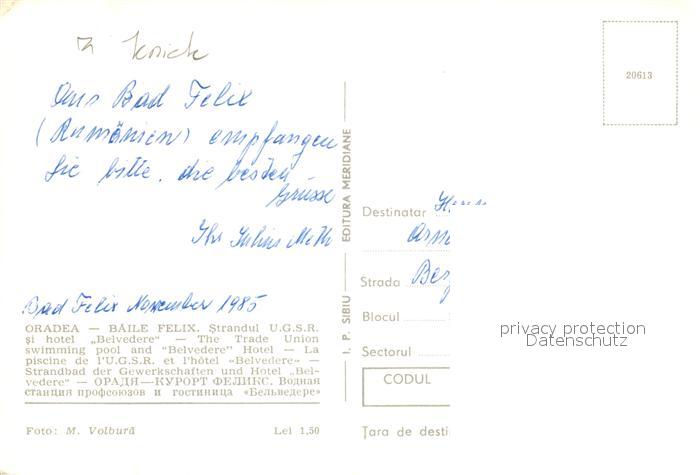 Aus Bad Felix
(Rumänien) empfangen
Sie bitte, die besten
Grüsse
Ihr Julius Meth
Bad Felix November 1985
ORADEA — BĂILE FELIX. Ştrandul U.G.S.R.
şi hotel „Belvedere” — The Trade Union
swimming pool and “Belvedere” Hotel — La
piscine de l’U.G.S.R. et l’hôtel «Belvedere» —
Strandbad der Gewerkschaften und Hotel „Bel-
vedere“ — ОРАДЯ—КУРОРТ ФЕЛИКС. Водная
станция профсоюзов и гостиница «Бельведере»
Foto: M. Volbură Lei 1,50
I. P. SIBIU EDITURA MERIDIANE
20613
Destinatar
Strada
Blocul
Sectorul
CODUL
Ţara de desti
privacy protection
Datenschutz